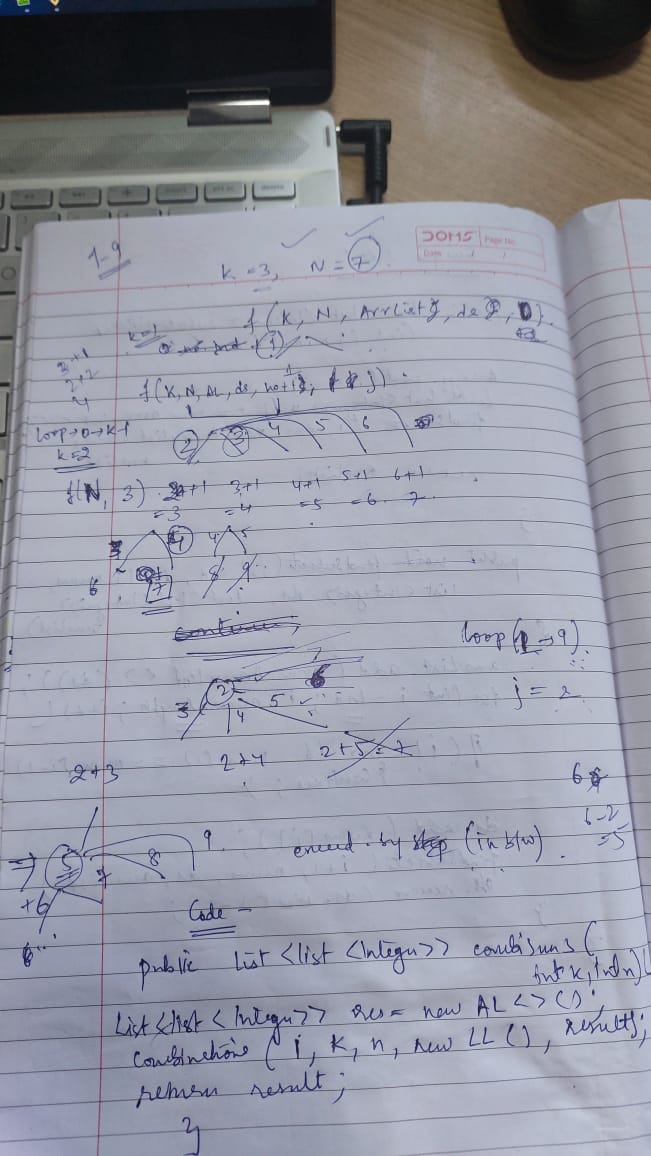 1-9
DOMS Page No.
Date / /
K = 3, N = 7
f(K, N, ArrList
k=1
3+1
2+2
4
f(K, N, AL, ds, no+1, j).
loop→0→K-1
2 3 4 5 6
k=2
f(N, 3) 2+1 3+1 4+1 5+1 6+1
=3 =4 =5 =6 7
4 4 5
6 7 8 9
continue;
loop(1→9).
2 6
j = 2
3 4 5
2+3 2+4 2+5=7
6
6-2
=5
⇒ 5 7 8 9. exceed by step (in b/w).
+6
6
Code -
public List <list <Integer>> combisums (
int k, int n)
List<list<Integer>> res= new AL<>();
combinations (i, k, n, new LL(), result);
return result;
}